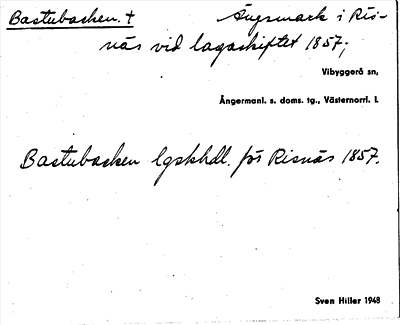 Bastubacken. † Ängsmark i Ris-
näs vid lagaskiftet 1857;
Vibyggerå sn,
Ångermanl. s. doms. tg., Västernorrl. l.
Bastubacken lgskhdl. för Risnäs 1857.
Sven Hiller 1948